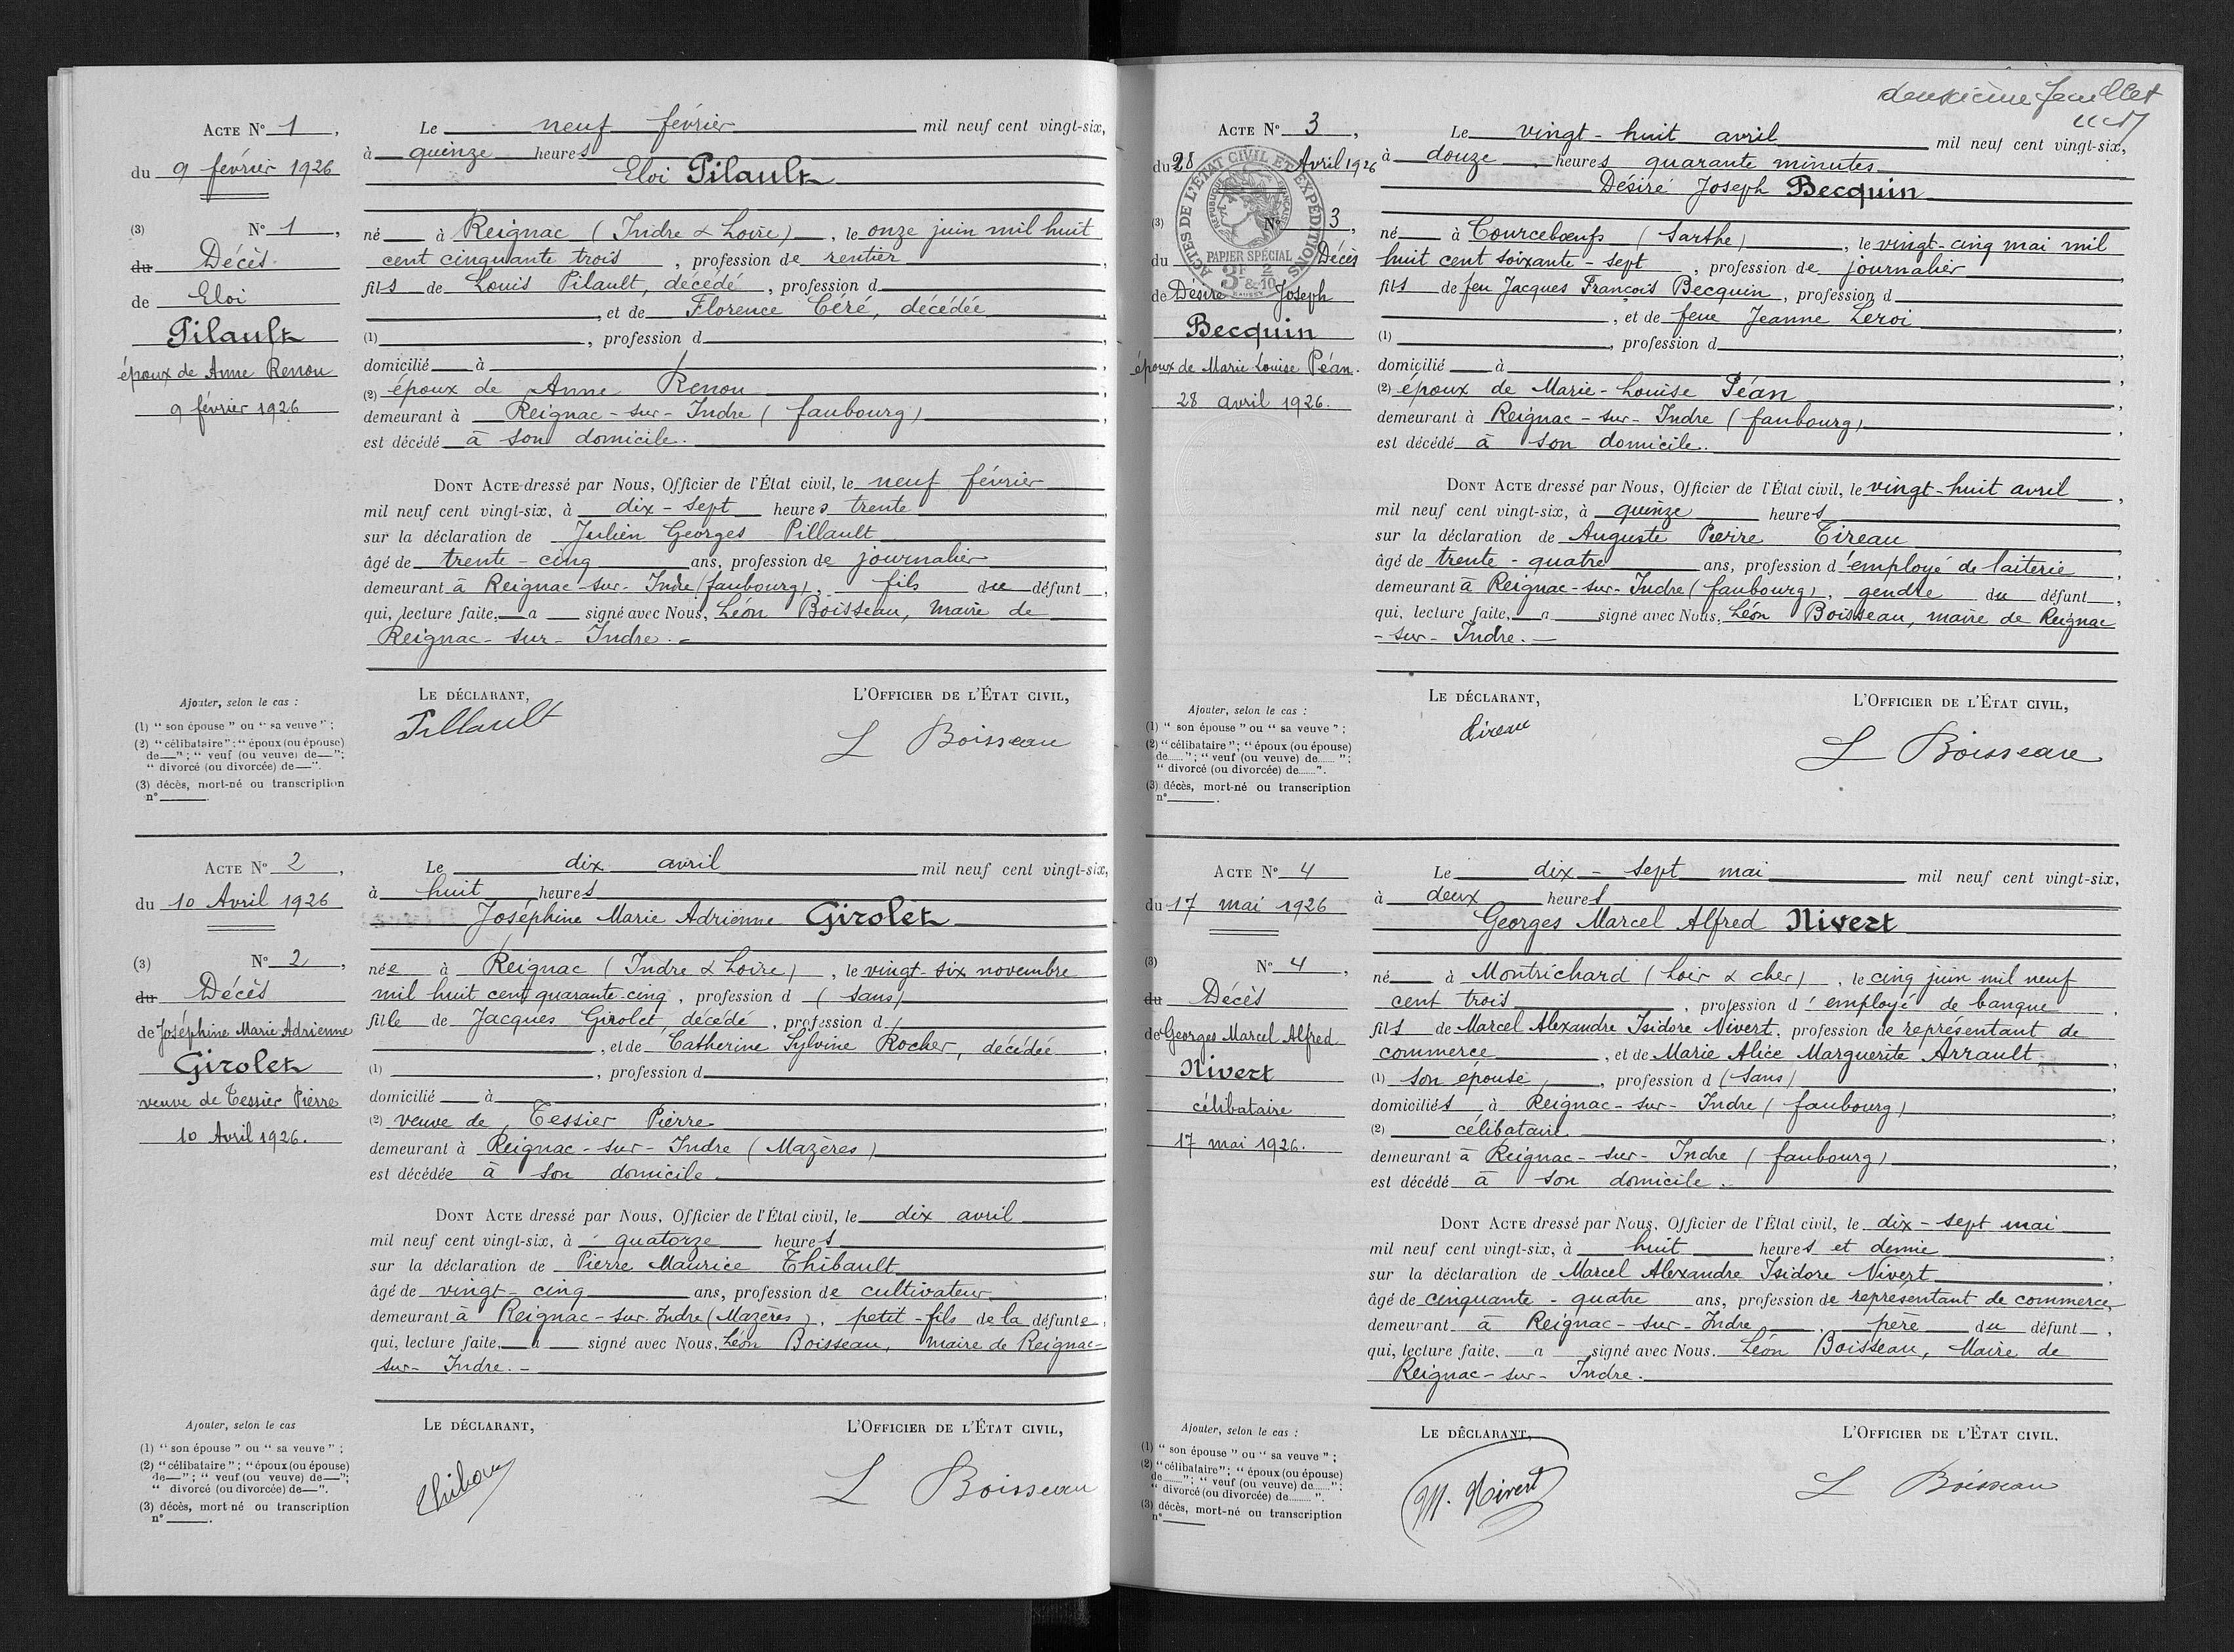 Acte N° 1,
du 9 février 1926
(3) N° 1,
du Décès
de Eloi
Pilault
époux de Anne Renou
9 février 1926
Le neuf février mil neuf cent vingt-six,
à quinze heures
Eloi Pilault
né à Reignac (Indre & Loire), le onze juin mil huit
cent cinquante trois, profession de rentier
fils de Louis Pilault, décédé, profession d
, et de Florence Céré, décédée
(1) , profession d
domicilié à
(2) époux de Anne Renou
demeurant à Reignac-sur-Indre (faubourg)
est décédé à son domicile.
Dont Acte dressé par Nous, Officier de l'État civil, le neuf février
mil neuf cent vingt-six, à dix-sept heures trente
sur la déclaration de Julien Georges Pillault
âgé de trente-cinq ans, profession de journalier
demeurant à Reignac-sur-Indre (faubourg), fils du défunt,
qui, lecture faite, a signé avec Nous, Léon Boisseau, maire de
Reignac-sur-Indre.
Le déclarant,
L'Officier de l'État civil,
Pillault
L Boisseau
Ajouter, selon le cas :
(1) " son épouse " ou " sa veuve " ;
(2) " célibataire " ; " époux (ou épouse)
de — " ; " veuf (ou veuve) de — " ;
" divorcé (ou divorcée) de — ".
(3) décès, mort-né ou transcription
n° .
Acte N° 2,
du 10 Avril 1926
(3) N° 2,
du Décès
de Joséphine Marie Adrienne
Girolet
veuve de Tessier Pierre
10 Avril 1926.
Le dix avril mil neuf cent vingt-six,
à huit heures
Joséphine Marie Adrienne Girolet
née à Reignac (Indre & Loire), le vingt-six novembre
mil huit cent quarante-cinq, profession d (sans)
fille de Jacques Girolet, décédé, profession d
, et de Catherine Sylvine Rocher, décédée
(1) , profession d
domicilié à
(2) veuve de Tessier Pierre
demeurant à Reignac-sur-Indre (Mazères)
est décédée à son domicile
Dont Acte dressé par Nous, Officier de l'État civil, le dix avril
mil neuf cent vingt-six, à quatorze heures
sur la déclaration de Pierre Maurice Thibault
âgé de vingt-cinq ans, profession de cultivateur
demeurant à Reignac-sur-Indre (Mazères), petit-fils de la défunte,
qui, lecture faite, a signé avec Nous, Léon Boisseau, maire de Reignac-
sur-Indre.-
Le déclarant,
L'Officier de l'État civil,
L Boisseau
Ajouter, selon le cas
(1) " son épouse " ou " sa veuve " ;
(2) " célibataire " ; " époux (ou épouse)
de — " ; " veuf (ou veuve) de — " ;
" divorcé (ou divorcée) de — ".
(3) décès, mort né ou transcription
n° .
deuxième feuillet
Acte N° 3,
du 28 Avril 1926
ACTES DE L'ÉTAT CIVIL ET EXPÉDITIONS
RÉPUBLIQUE FRANÇAISE
PAPIER SPÉCIAL
3F 2/10
(3) N° 3,
du Décès
de Désiré Joseph
Becquin
époux de Marie Louise Péan.
28 avril 1926.
Le vingt-huit avril mil neuf cent vingt-six,
à douze heures quarante minutes
Désiré Joseph Becquin
né à Courcebœufs (Sarthe), le vingt-cinq mai mil
huit cent soixante-sept, profession de journalier
fils de feu Jacques François Becquin, profession d
, et de feue Jeanne Leroi
(1) , profession d
domicilié à
(2) époux de Marie-Louise Péan
demeurant à Reignac-sur-Indre (faubourg)
est décédé à son domicile.
Dont Acte dressé par Nous, Officier de l'État civil, le vingt-huit avril,
mil neuf cent vingt-six, à quinze heures
sur la déclaration de Auguste Pierre Tireau
âgé de trente-quatre ans, profession d'employé de laiterie,
demeurant à Reignac-sur-Indre (faubourg), gendre du défunt,
qui, lecture faite, a signé avec Nous, Léon Boisseau, maire de Reignac
-sur-Indre.-
Le déclarant,
L'Officier de l'État civil,
Tireau
L Boisseau
Ajouter, selon le cas :
(1) " son épouse " ou " sa veuve " ;
(2) " célibataire " ; " époux (ou épouse)
de ...... " ; " veuf (ou veuve) de ...... " ;
" divorcé (ou divorcée) de ...... ".
(3) décès, mort-né ou transcription
n° .
Acte N° 4
du 17 mai 1926
(3) N° 4,
du Décès
de Georges Marcel Alfred
Nivert
célibataire
17 mai 1926.
Le dix-sept mai mil neuf cent vingt-six,
à deux heures
Georges Marcel Alfred Nivert
né à Montrichard (Loir & cher), le cinq juin mil neuf
cent trois, profession d'employé de banque,
fils de Marcel Alexandre Isidore Nivert, profession de représentant de
commerce, et de Marie Alice Marguerite Arrault
(1) son épouse, profession d (sans)
domiciliés à Reignac-sur-Indre (faubourg)
(2) célibataire
demeurant à Reignac-sur-Indre (faubourg)
est décédé à son domicile.
Dont Acte dressé par Nous, Officier de l'État civil, le dix-sept mai
mil neuf cent vingt-six, à huit heures et demie
sur la déclaration de Marcel Alexandre Isidore Nivert
âgé de cinquante-quatre ans, profession de représentant de commerce,
demeurant à Reignac-sur-Indre, père du défunt,
qui, lecture faite, a signé avec Nous. Léon Boisseau, Maire de
Reignac-sur-Indre.
Le déclarant,
L'Officier de l'État civil,
M. Nivert
L Boisseau
Ajouter, selon le cas :
(1) " son épouse " ou " sa veuve " ;
(2) " célibataire " ; " époux (ou épouse)
de ...... " ; " veuf (ou veuve) de ...... " ;
" divorcé (ou divorcée) de ...... ".
(3) décès, mort-né ou transcription
n°